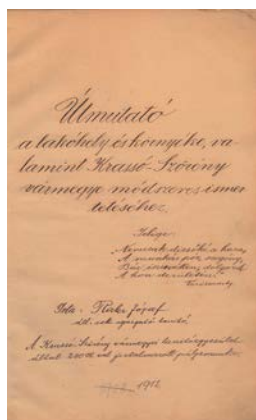 Útmutató
a lakóhely és környéke, va-
lamint Krassó-Szörény
vármegye módszeres ismer
tetéséhez.
Jelige:
Nemcsak dicsőké a haza,
A munkás pór, szegény,
Bár észrevétlen, dolgozik
A hon derületén.
Vörösmarty
Írta: József
áll. isk. igazgató tanító
A Krassó-Szörény vármegyei tanítóegyesület
által 200 K-val jutalmazott pályamunka.
1912